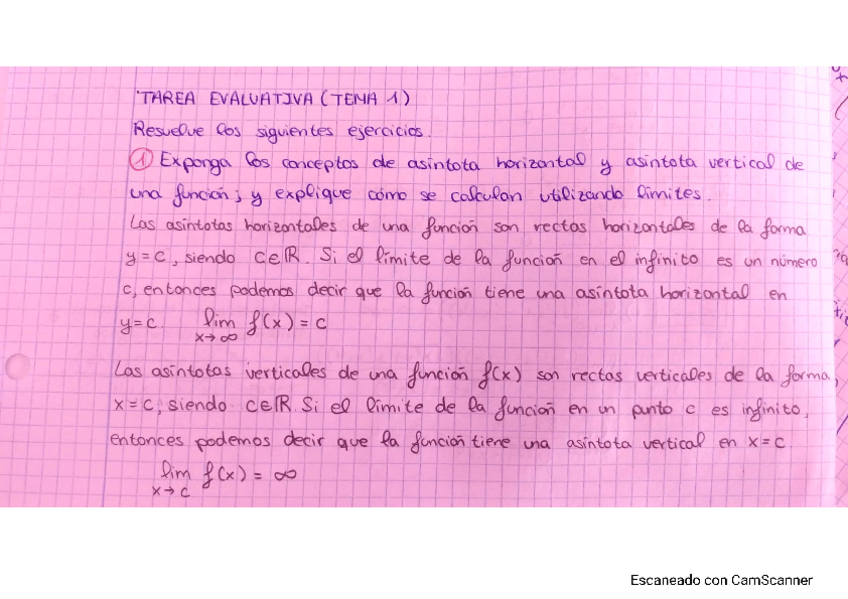 TAREA EVALUATIVA (TEMA 1)
Resuelve los siguientes ejercicios.
① Exponga los conceptos de asíntota horizontal y asíntota vertical de
una función; y explique cómo se calculan utilizando límites.
Las asíntotas horizontales de una función son rectas horizontales de la forma
y=c, siendo c∈ℝ. Si el límite de la función en el infinito es un número
c, entonces podemos decir que la función tiene una asíntota horizontal en
y=c. lim f(x) = c
x→∞
Las asíntotas verticales de una función f(x) son rectas verticales de la forma,
x=c, siendo c∈ℝ. Si el límite de la función en un punto c es infinito,
entonces podemos decir que la función tiene una asíntota vertical en x=c.
lim f(x) = ∞
x→c
Escaneado con CamScanner